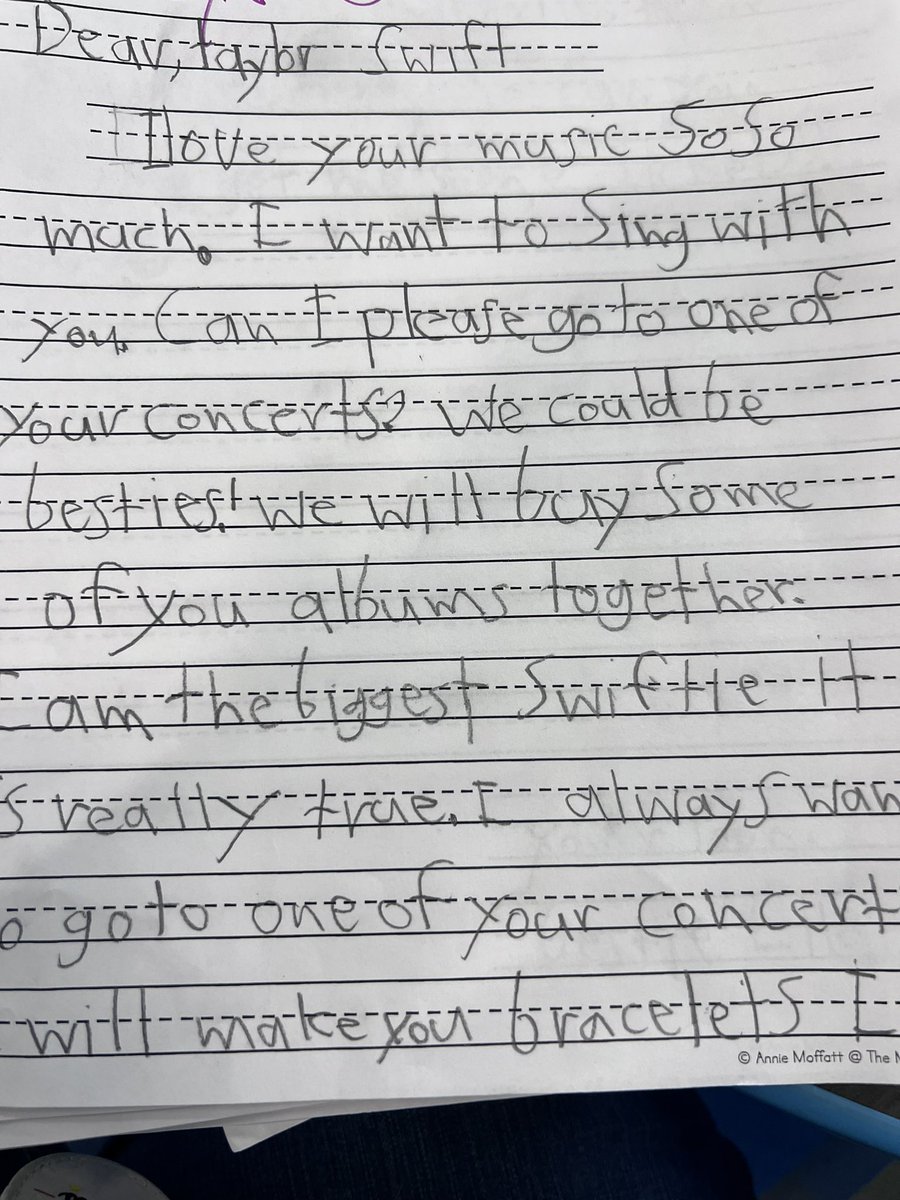 Dear, taylor Swift
I love your music So So
much. I want to Sing with
you. Can I please go to one of
your concerts? We could be
besties! We will buy some
of you albums together.
I am the biggest Swiftie It
s really true. I always wan
o go to one of your concert
will make you bracelets I
© Annie Moffatt @ The